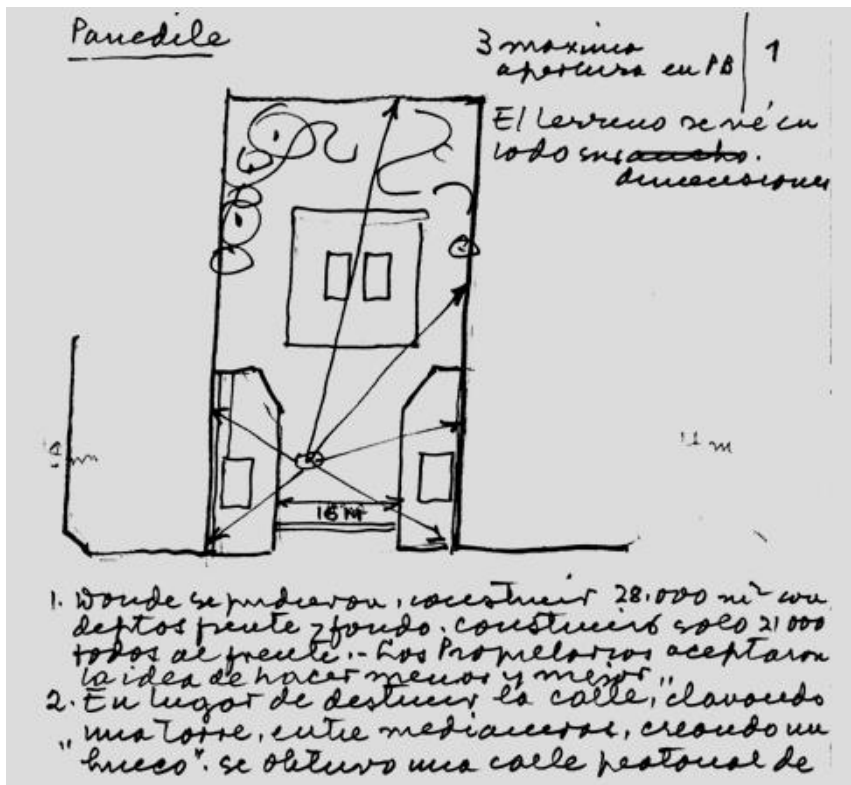 Panedile
3 maxima
apertura en PB
1
El terreno se vé en
todo sus ancho.
dimensiones
m
11 m
16 M
1. Donde se pudieron, construir 28.000 m² con
deptos frente y fondo. construimos solo 21000
todos al frente.- Los Propietarios aceptaron
la idea de hacer menos y mejor"
2. En lugar de destruir la calle, clavando
una torre, entre medianeras, creando un
"hueco". se obtuvo una calle peatonal de